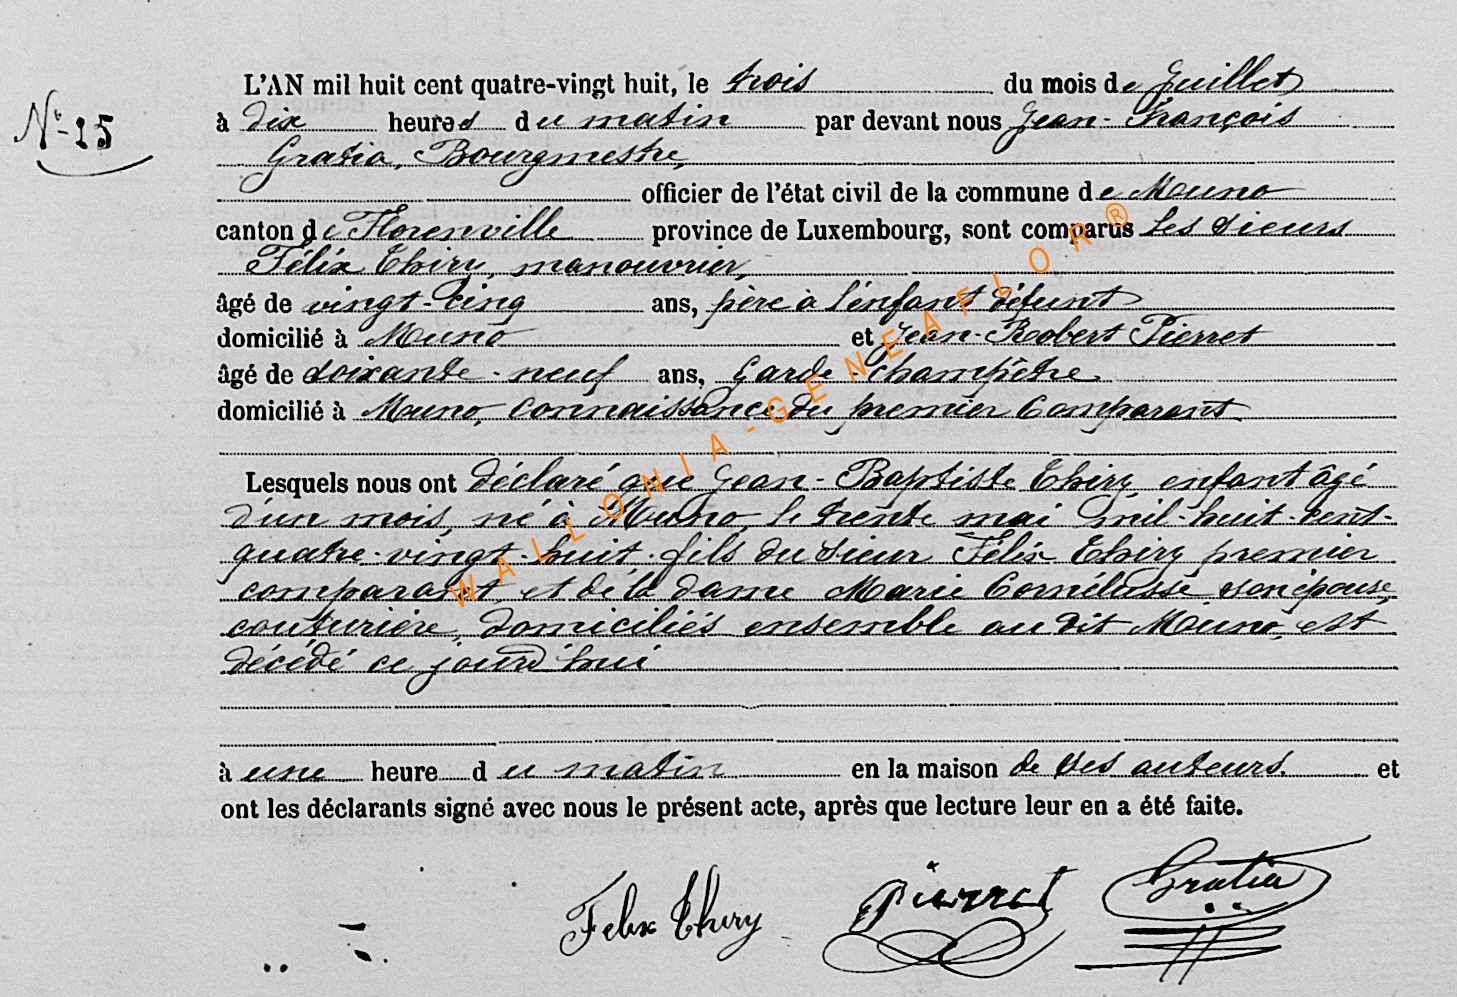 L'AN mil huit cent quatre-vingt huit, le trois du mois de Juillet
N° 25
à dix heures du matin par devant nous Jean-François
Gratia, Bourgmestre,
officier de l'état civil de la commune de Muno
canton de Florenville province de Luxembourg, sont comparus les sieurs
Félix Thiry, manouvrier,
âgé de vingt-cinq ans, père à l'enfant défunt
domicilié à Muno et Jean-Robert Pierret
âgé de soixante-neuf ans, Garde-champêtre
domicilié à Muno, connaissance du premier comparant
Lesquels nous ont déclaré que Jean-Baptiste Thiry enfant âgé
d'un mois, né à Muno, le trente mai mil-huit-cent-
quatre-vingt-huit. fils du sieur Félix Thiry premier
comparant et de la dame Marie son épouse,
couturière, domiciliés ensemble au dit Muno, est
décédé ce jourd'hui
à une heure du matin en la maison de ses auteurs. et
ont les déclarants signé avec nous le présent acte, après que lecture leur en a été faite.
Felix Thiry Pierret Gratia
WALLONIA-GENEAFLOR®